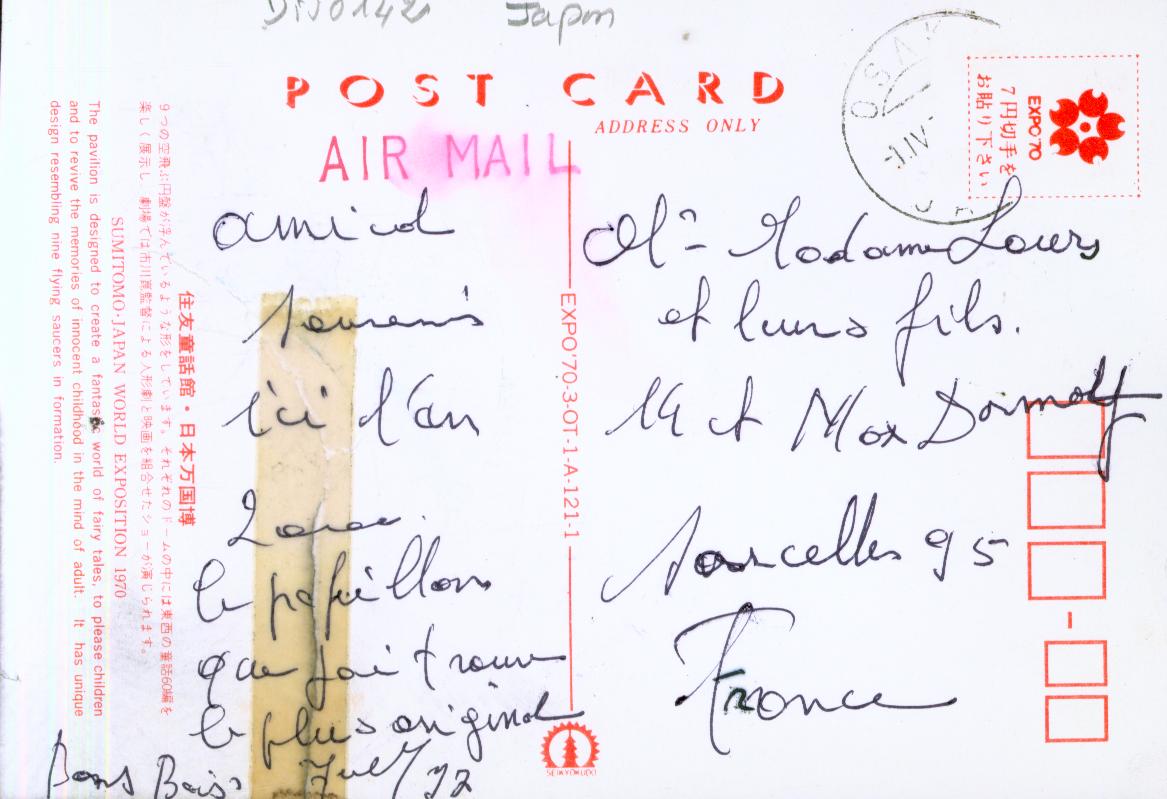 Japan
POST CARD
ADDRESS ONLY
AIR MAIL
OSAKA
-1.IV
EXPO'70
7円切手を
お貼り下さい
住友童話館・日本万国博
9つの空飛ぶ円盤が浮んでいるような形をしています。それぞれのドームの中には東西の童話60編を
楽しく展示し、劇場では市川崑監督による人形劇と映画を組合せたショーが演じられます。
SUMITOMO·JAPAN WORLD EXPOSITION 1970
The pavilion is designed to create a fantastic world of fairy tales, to please children
and to revive the memories of innocent childhood in the mind of adult. It has unique
design resembling nine flying saucers in formation.
amical
souvenirs
ici l'an
2000
le papillon
que j'ai trouve
le plus original
Bons Bais
EXPO'70-3-OT-1-A-121-1
Mr Madame Lours
et leurs fils.
14 ct Max Dormoy
Sarcelles 95
France
SEIKYOKUDO